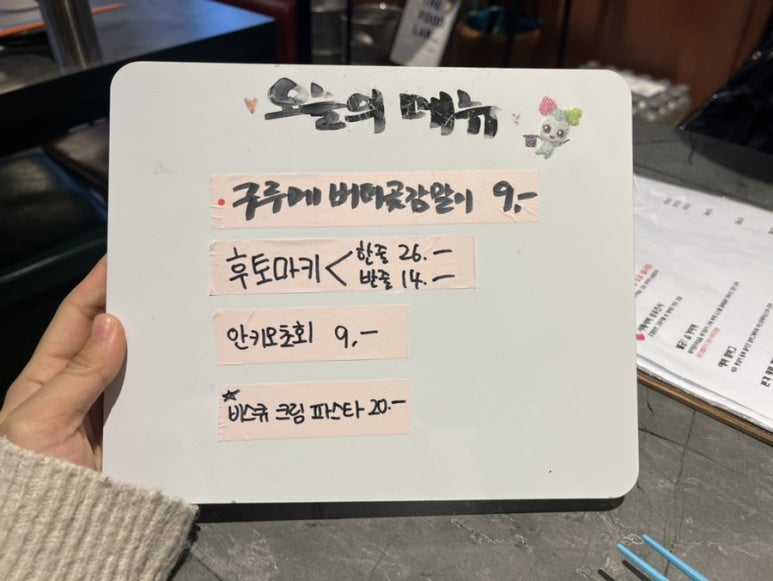 오늘의 메뉴
구루메 버터곶감말이 9.-
후토마키 < 한줄 26.-
반줄 14.-
안키모초회 9,-
☆비스큐 크림 파스타 20.-